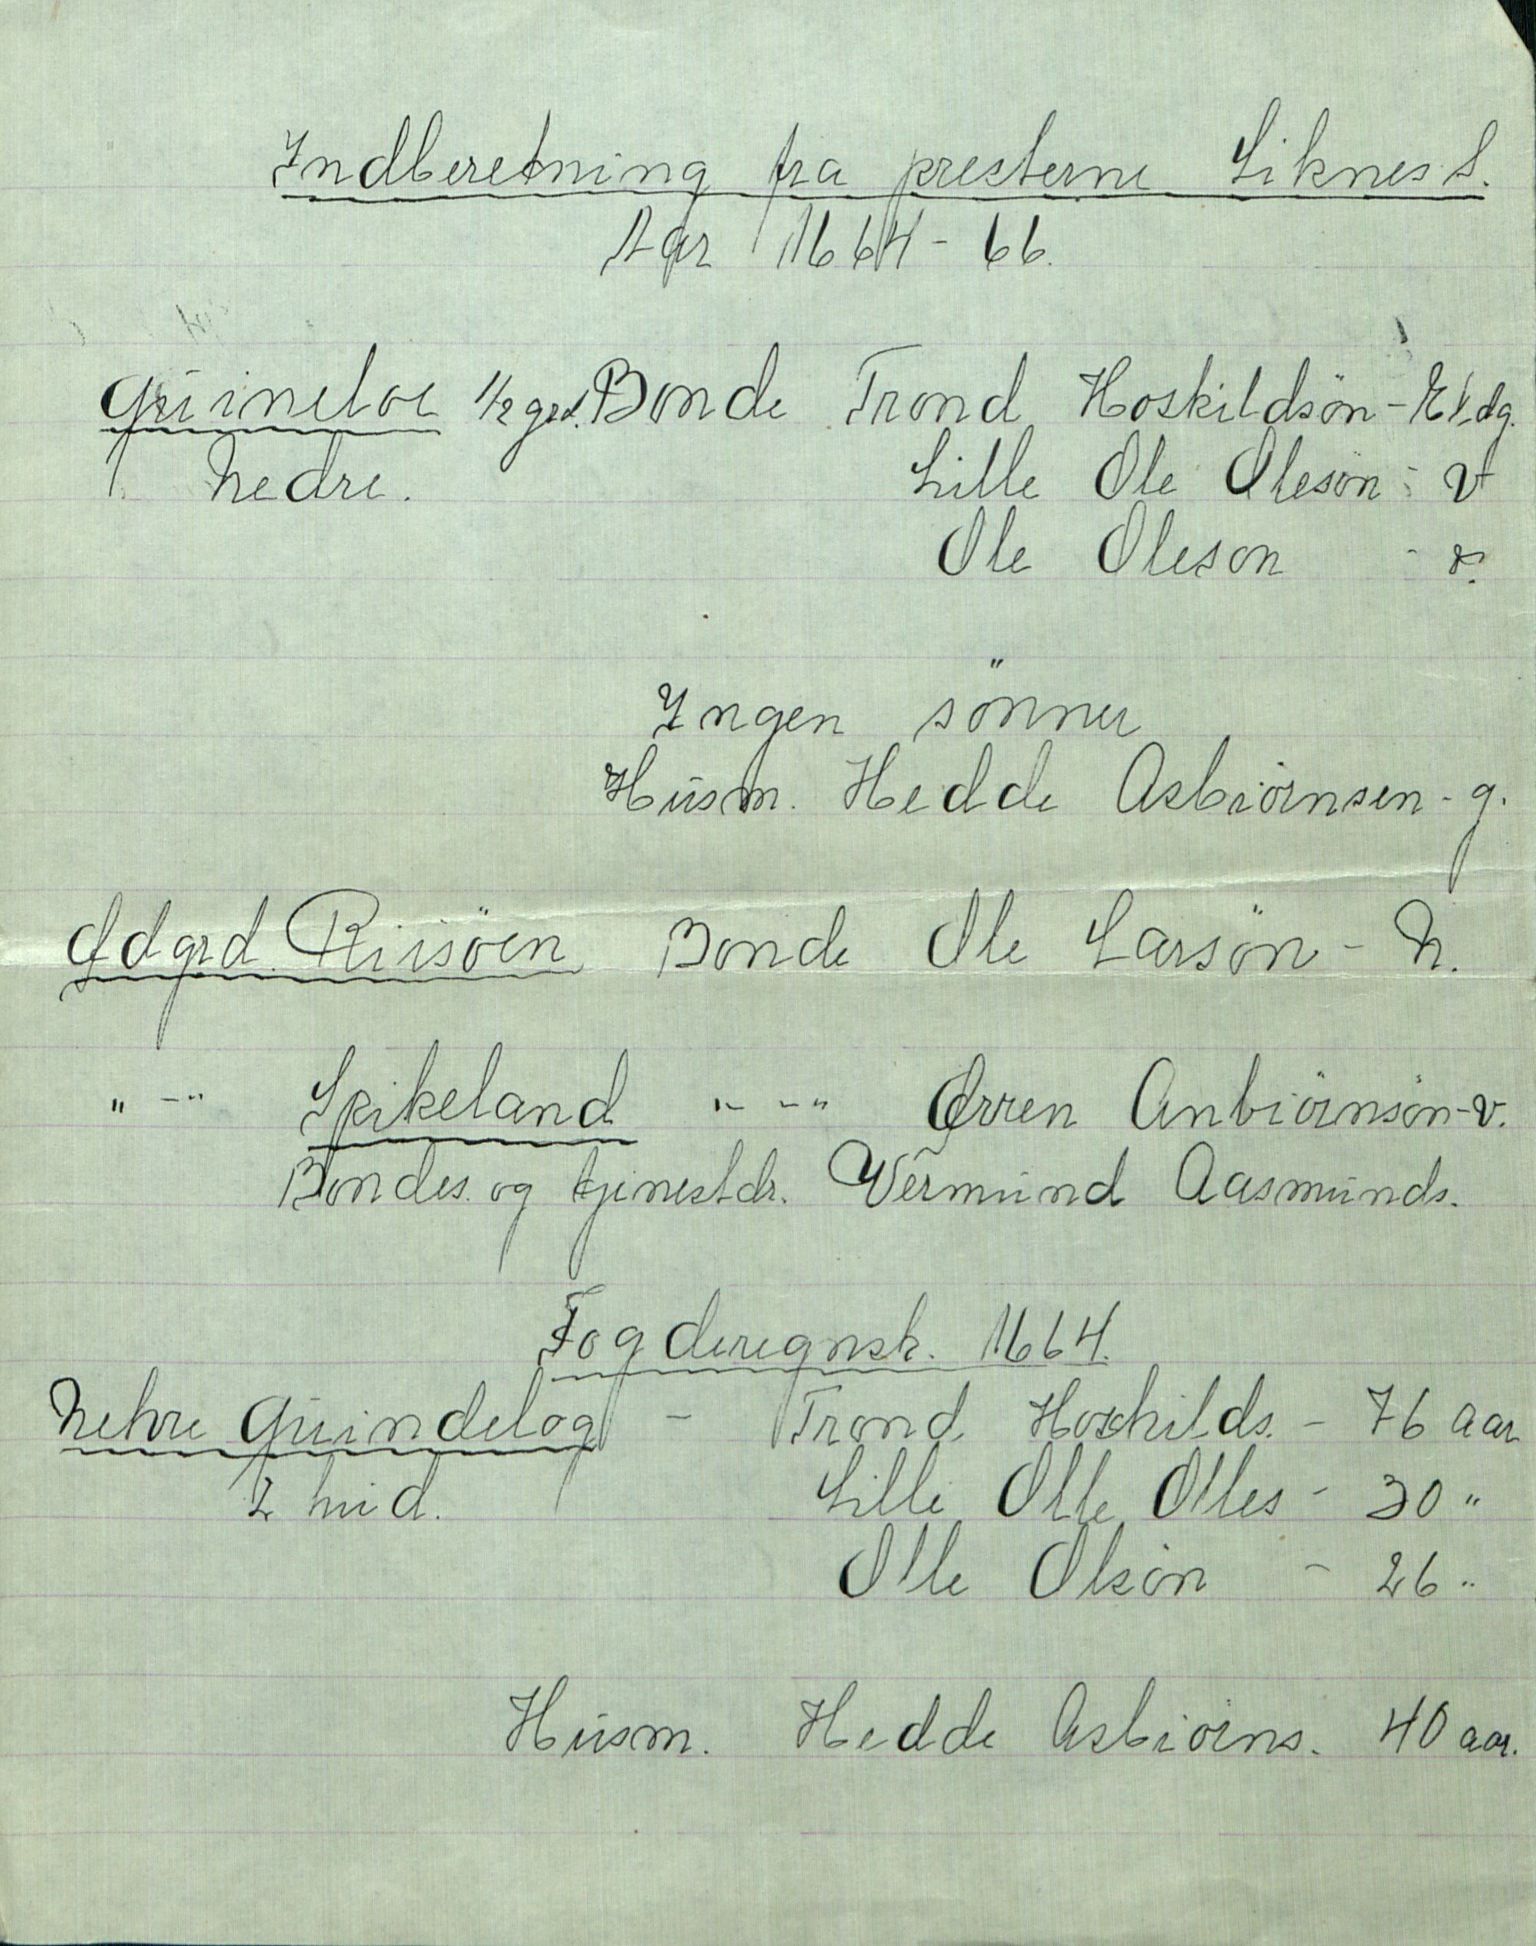 Indberetning fra presterne Liknes S.
Aar 1664-66.
Qüineloe 1/2 grd. Bonde Trond Hoskildsön -
Nedre. Lille Ole Oleson - v
Ole Oleson -
Ingen sönner
Hüsm. Hedde Asbiörnsen - g.
Ödgrd. Riisöen Bonde Ole Larsön - N.
" -" Spikeland " - -" Orren Anbiörnsön - v.
Bondes. og tjenestdr. Vermünd Aasmünds.
Fogderegnsk. 1664.
Nehre Qüindelog - Trond Hoskilds. - 76 aar
2 hüd. Lille Olle Olles - 30 "
Olle Olsön - 26 "
Hüsm. Hedde Asbiörns. 40 aar.